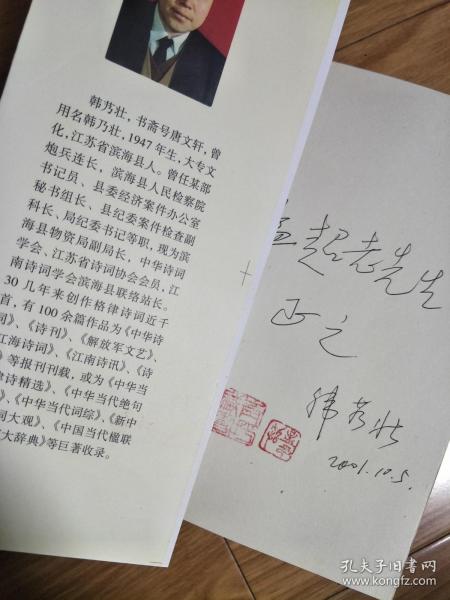 韩乃壮，书斋号唐文轩，曾
用名韩乃壮，1947年生，大专文
化，江苏省滨海县人。曾任某部
炮兵连长，滨海县人民检察院
书记员、县委经济案件办公室
秘书组长、县纪委案件检查副
科长、局纪委书记等职，现为滨
海县物资局副局长，中华诗词
学会、江苏省诗词协会会员，江
南诗词学会滨海县联络站长。
30几年来创作格律诗词近千
首，有100余篇作品为《中华诗
词》、《诗刊》、《解放军文艺》、
江海诗词》、《江南诗讯》、《诗
》等报刊刊载，或为《中华当
律诗精选》、《中华当代绝句
》、《中华当代词综》、《新中
词大观》、《中国当代楹联
大辞典》等巨著收录。
孟超老先生
正之
韩乃壮
2001.10.5.
孔夫子旧书网
www.kongfz.com